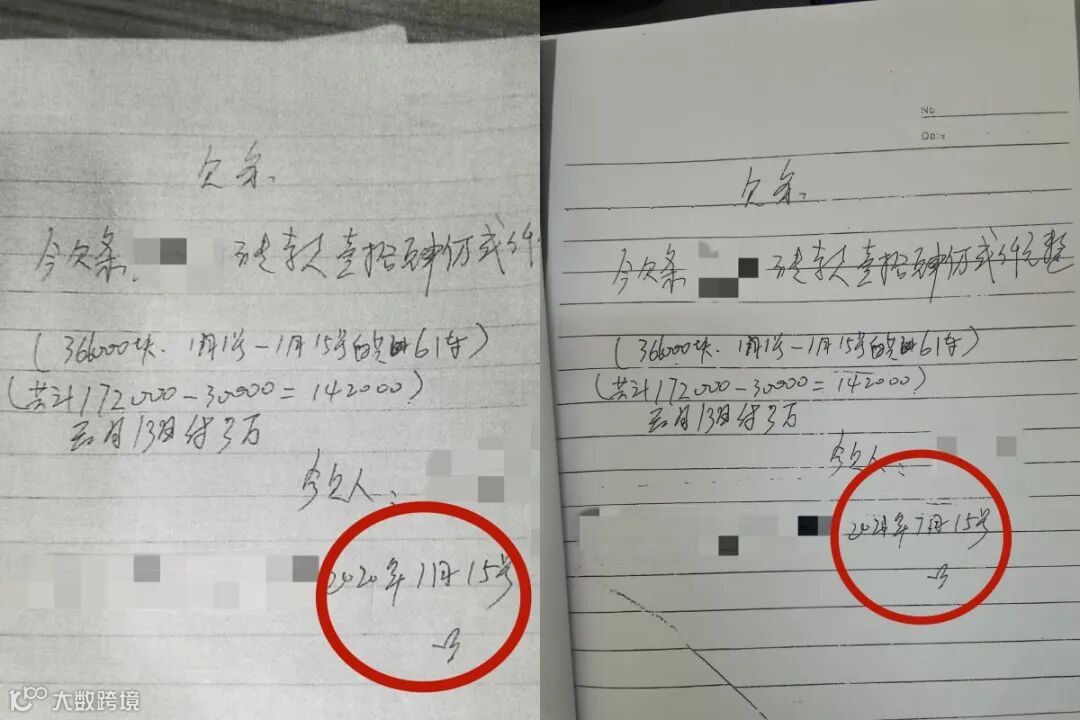 欠条
今欠条
壹拾肆仟贰仟
(36000块、1月1号-1月15号的 61车)
(共计172000-30000=142000)
1月13日付3万
今欠人：
2020年1月15号
大数跨境
No
Da
欠条
今欠条
壹拾肆仟贰仟元整
(36000块、1月1号-1月15号的 61车)
(共计172000-30000=142000)
1月13日付3万
今欠人：
2021年7月15号